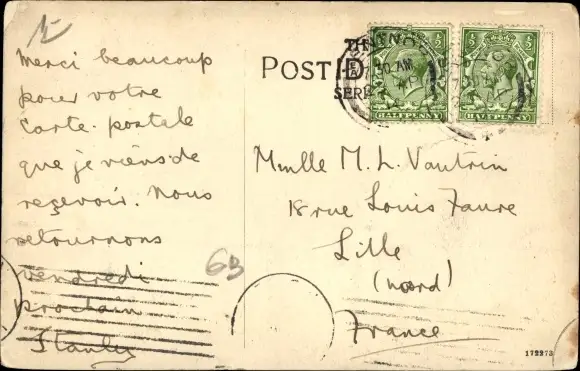 Merci beaucoup
pour votre
Carte-postale
que je viens de
reçevoir. Nous
retournons
vendredi
prochain
Stanley
63
POST
TH
SER
HALFPENNY
HALFPENNY
30 AM
Mmlle M. L. Vautrin
18 rue Louis Faure
Lille
(nord)
France
172273